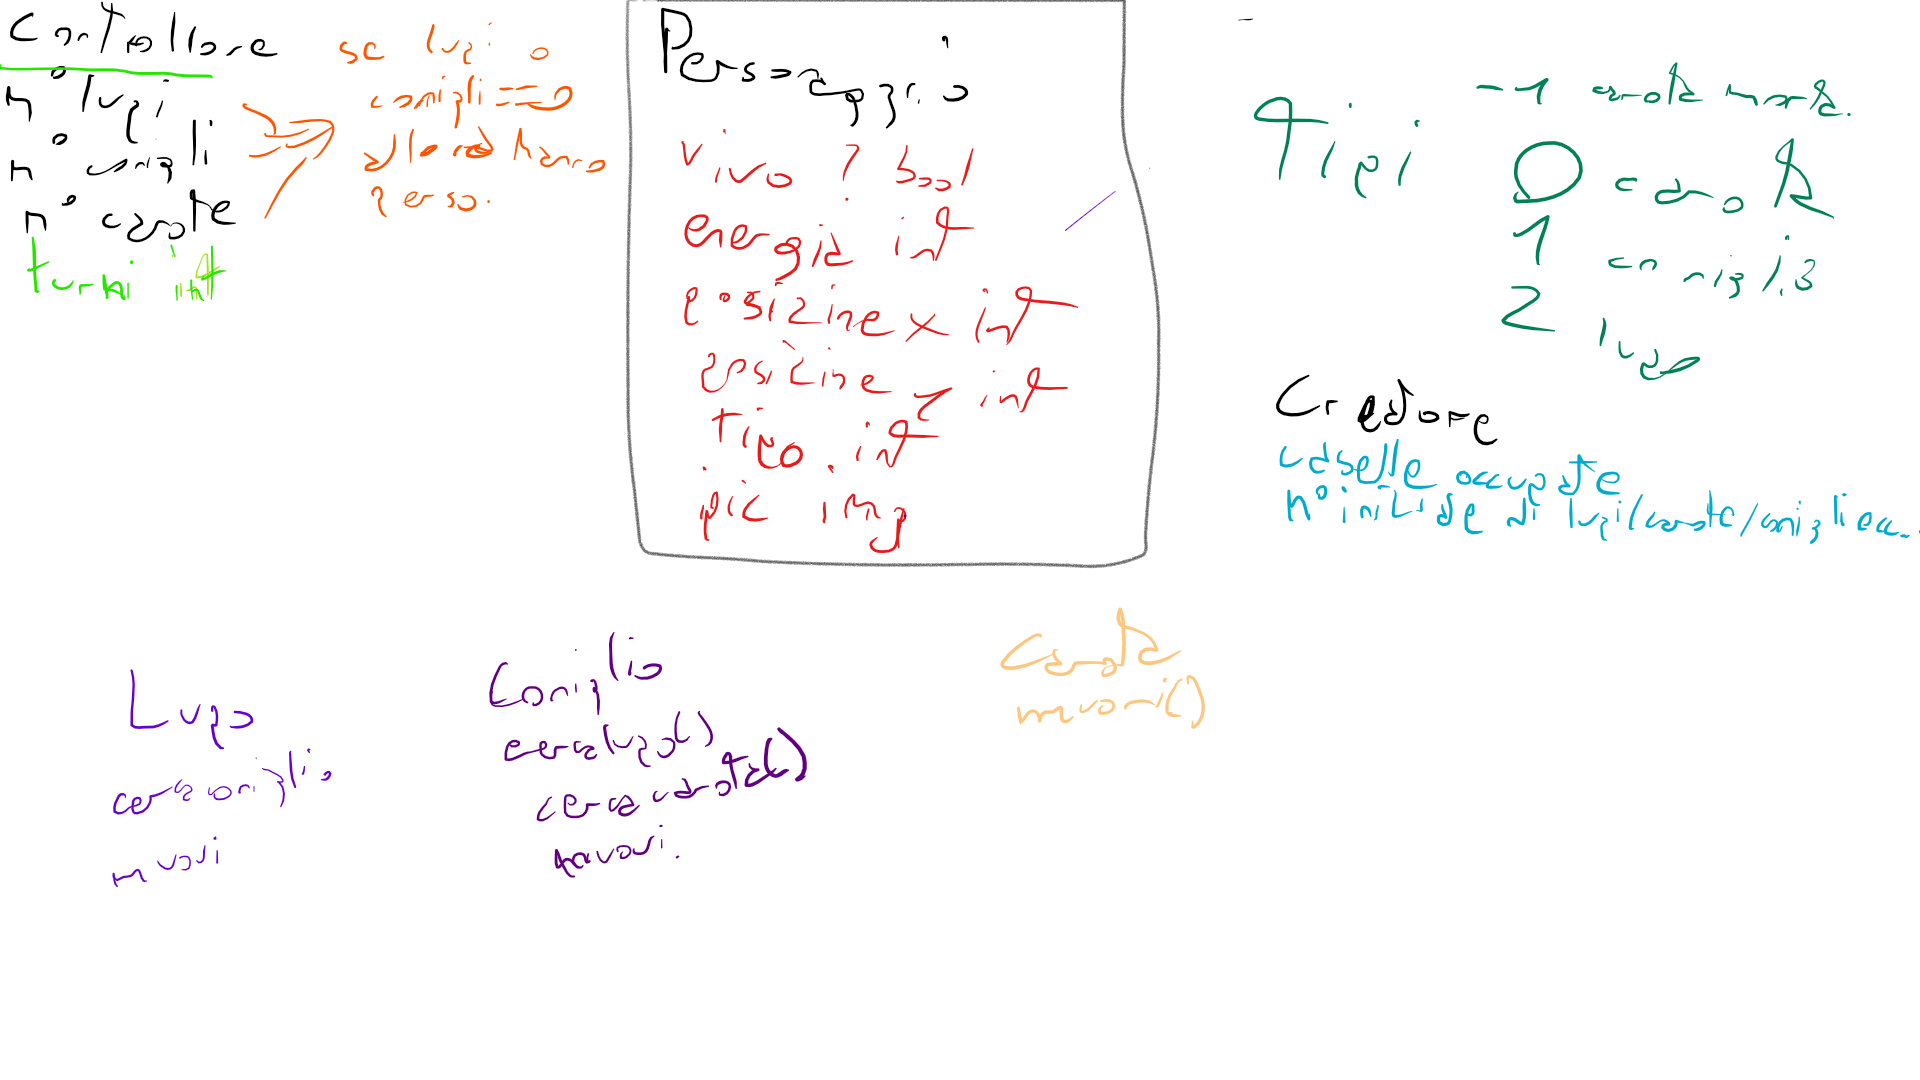 Controllore
n° lupi
n° conigli
n° carote
turni int
se lupi o
conigli == 0
allora hanno
perso.
Personaggio
vivo ? bool
energia int
posizine x int
posizine y int
tipo int
pic img
Tipi
-1 carota morta.
0 carota
1 coniglio
2 lupo
Creatore
caselle occupate
n° iniziale di lupi/carote/conigli ecc..
Lupo
cercaconiglio
muori
Coniglio
cercalupo()
cercacarota()
muori.
Carota
muori()